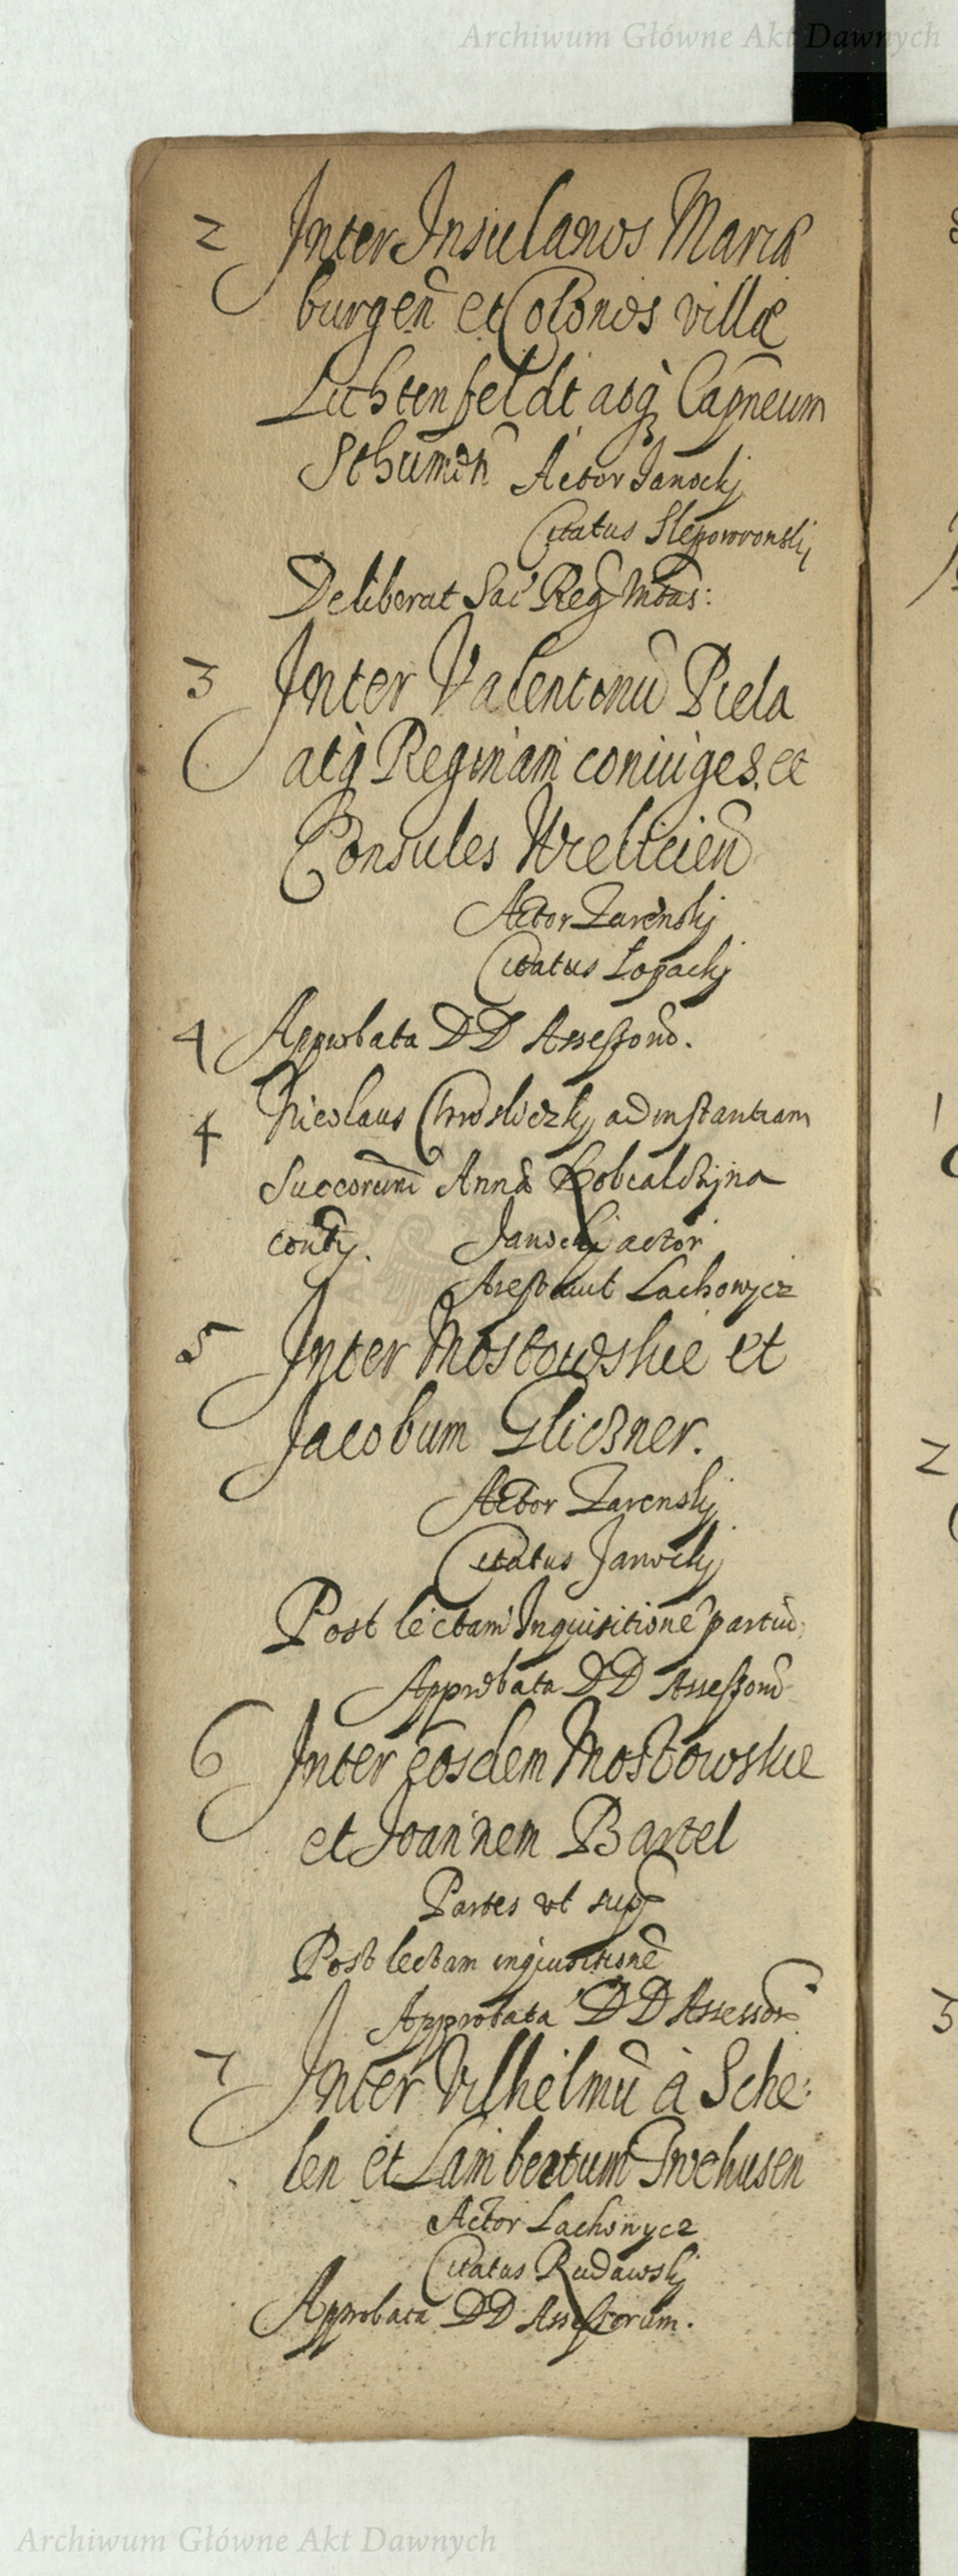 Archiwum Główne Akt Dawnych
2 Inter Insulanos Mariæ
burgen et Colonos villæ
Lichtenfeldt atq Capneum
Sthumen Actor Janockj
Citatus Slepowronskj
Deliberat Sac Reg Mtas:
3 Inter Valentinu Piela
atq Reginam coniuges et
Consules Wieliciens
Actor Zarenskj
Citatus Łopackj
4 Approbata DD Assessoru.
4 Nicolaus ad instantiam
Succorum Annæ
contj. Janockj actor
Lachowycz
5 Inter Mostowskie et
Jacobum Gliczner.
Actor Zarenskj
Citatus Janockj
Post lectam Inquisitione partiu
Approbata DD Assessoru
6 Inter eosdem Mostowskie
et Joannem Bartel
Partes vt sup
Post lectam inquisitione
Approbata DD Assessor
7 Inter Vilhelmu à Sche:
len et Lambertum Twehusen
Actor Lachowycz
Citatus Rudawskj
Approbata DD Assessorum.
Archiwum Główne Akt Dawnych